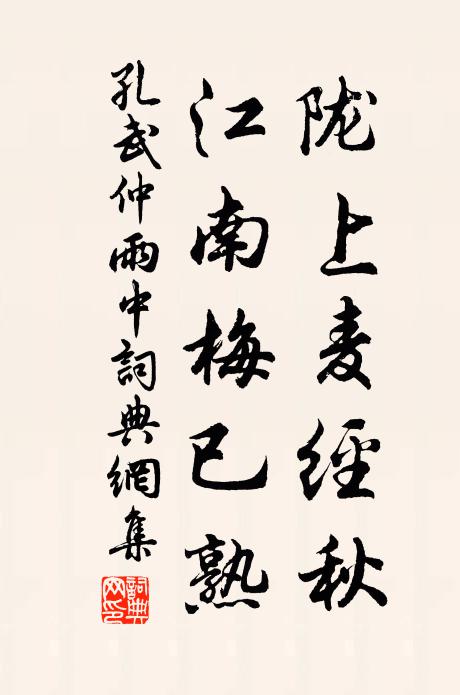 陇上麦经秋
江南梅已熟
孔武仲雨中詞典網集
詞典网印